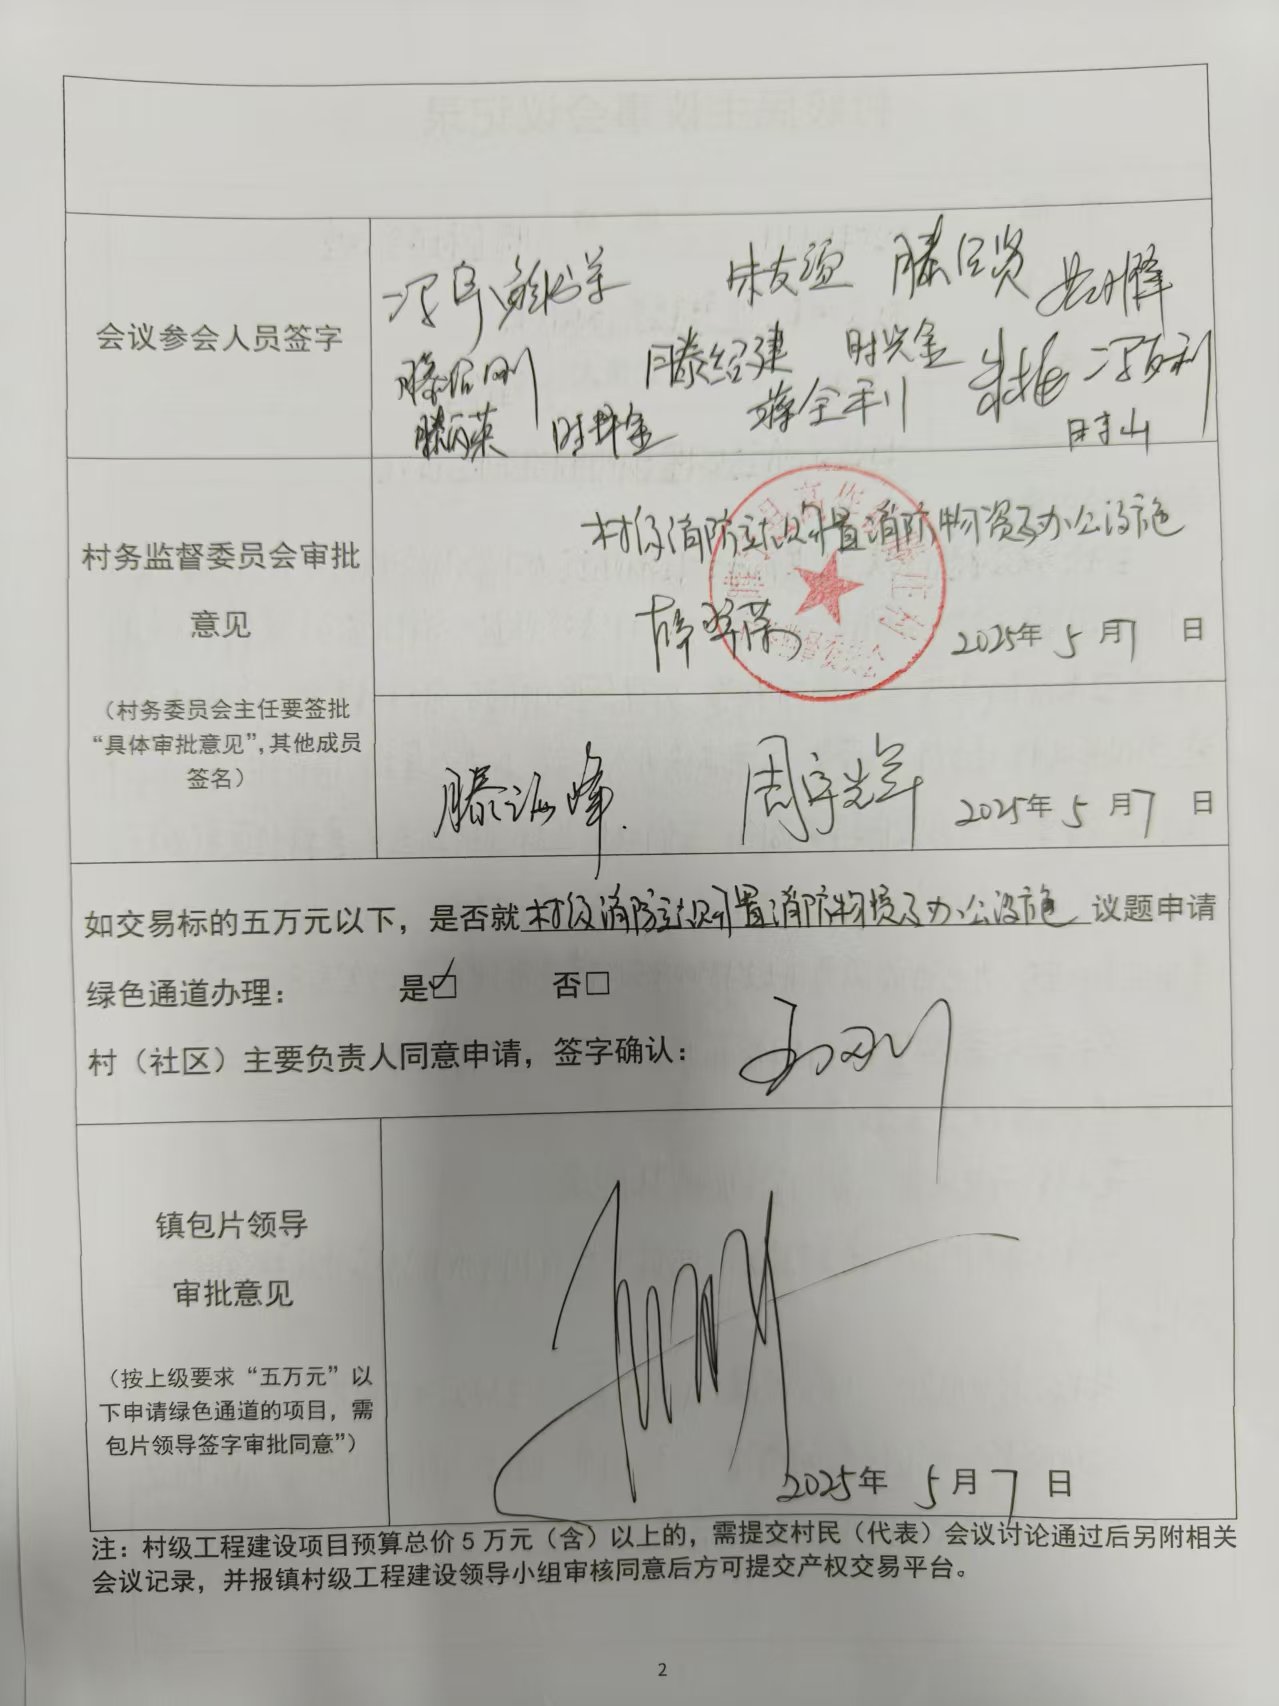 会议参会人员签字
滕绍刚 滕经建 时兴金
滕丙英 时井金 蒋全利 时山
村级消防站购置消防物资及办公设施
村务监督委员会审批
意见
2025年5月7日
监督委员会
（村务委员会主任要签批
“具体审批意见”，其他成员
签名）
滕海峰 周宇光 2025年5月7日
如交易标的五万元以下，是否就村级消防站购置消防物资及办公设施议题申请
绿色通道办理： 是☑ 否□
村（社区）主要负责人同意申请，签字确认：
镇包片领导
审批意见
（按上级要求“五万元”以
下申请绿色通道的项目，需
包片领导签字审批同意”）
2025年5月7日
注：村级工程建设项目预算总价5万元（含）以上的，需提交村民（代表）会议讨论通过后另附相关
会议记录，并报镇村级工程建设领导小组审核同意后方可提交产权交易平台。
2